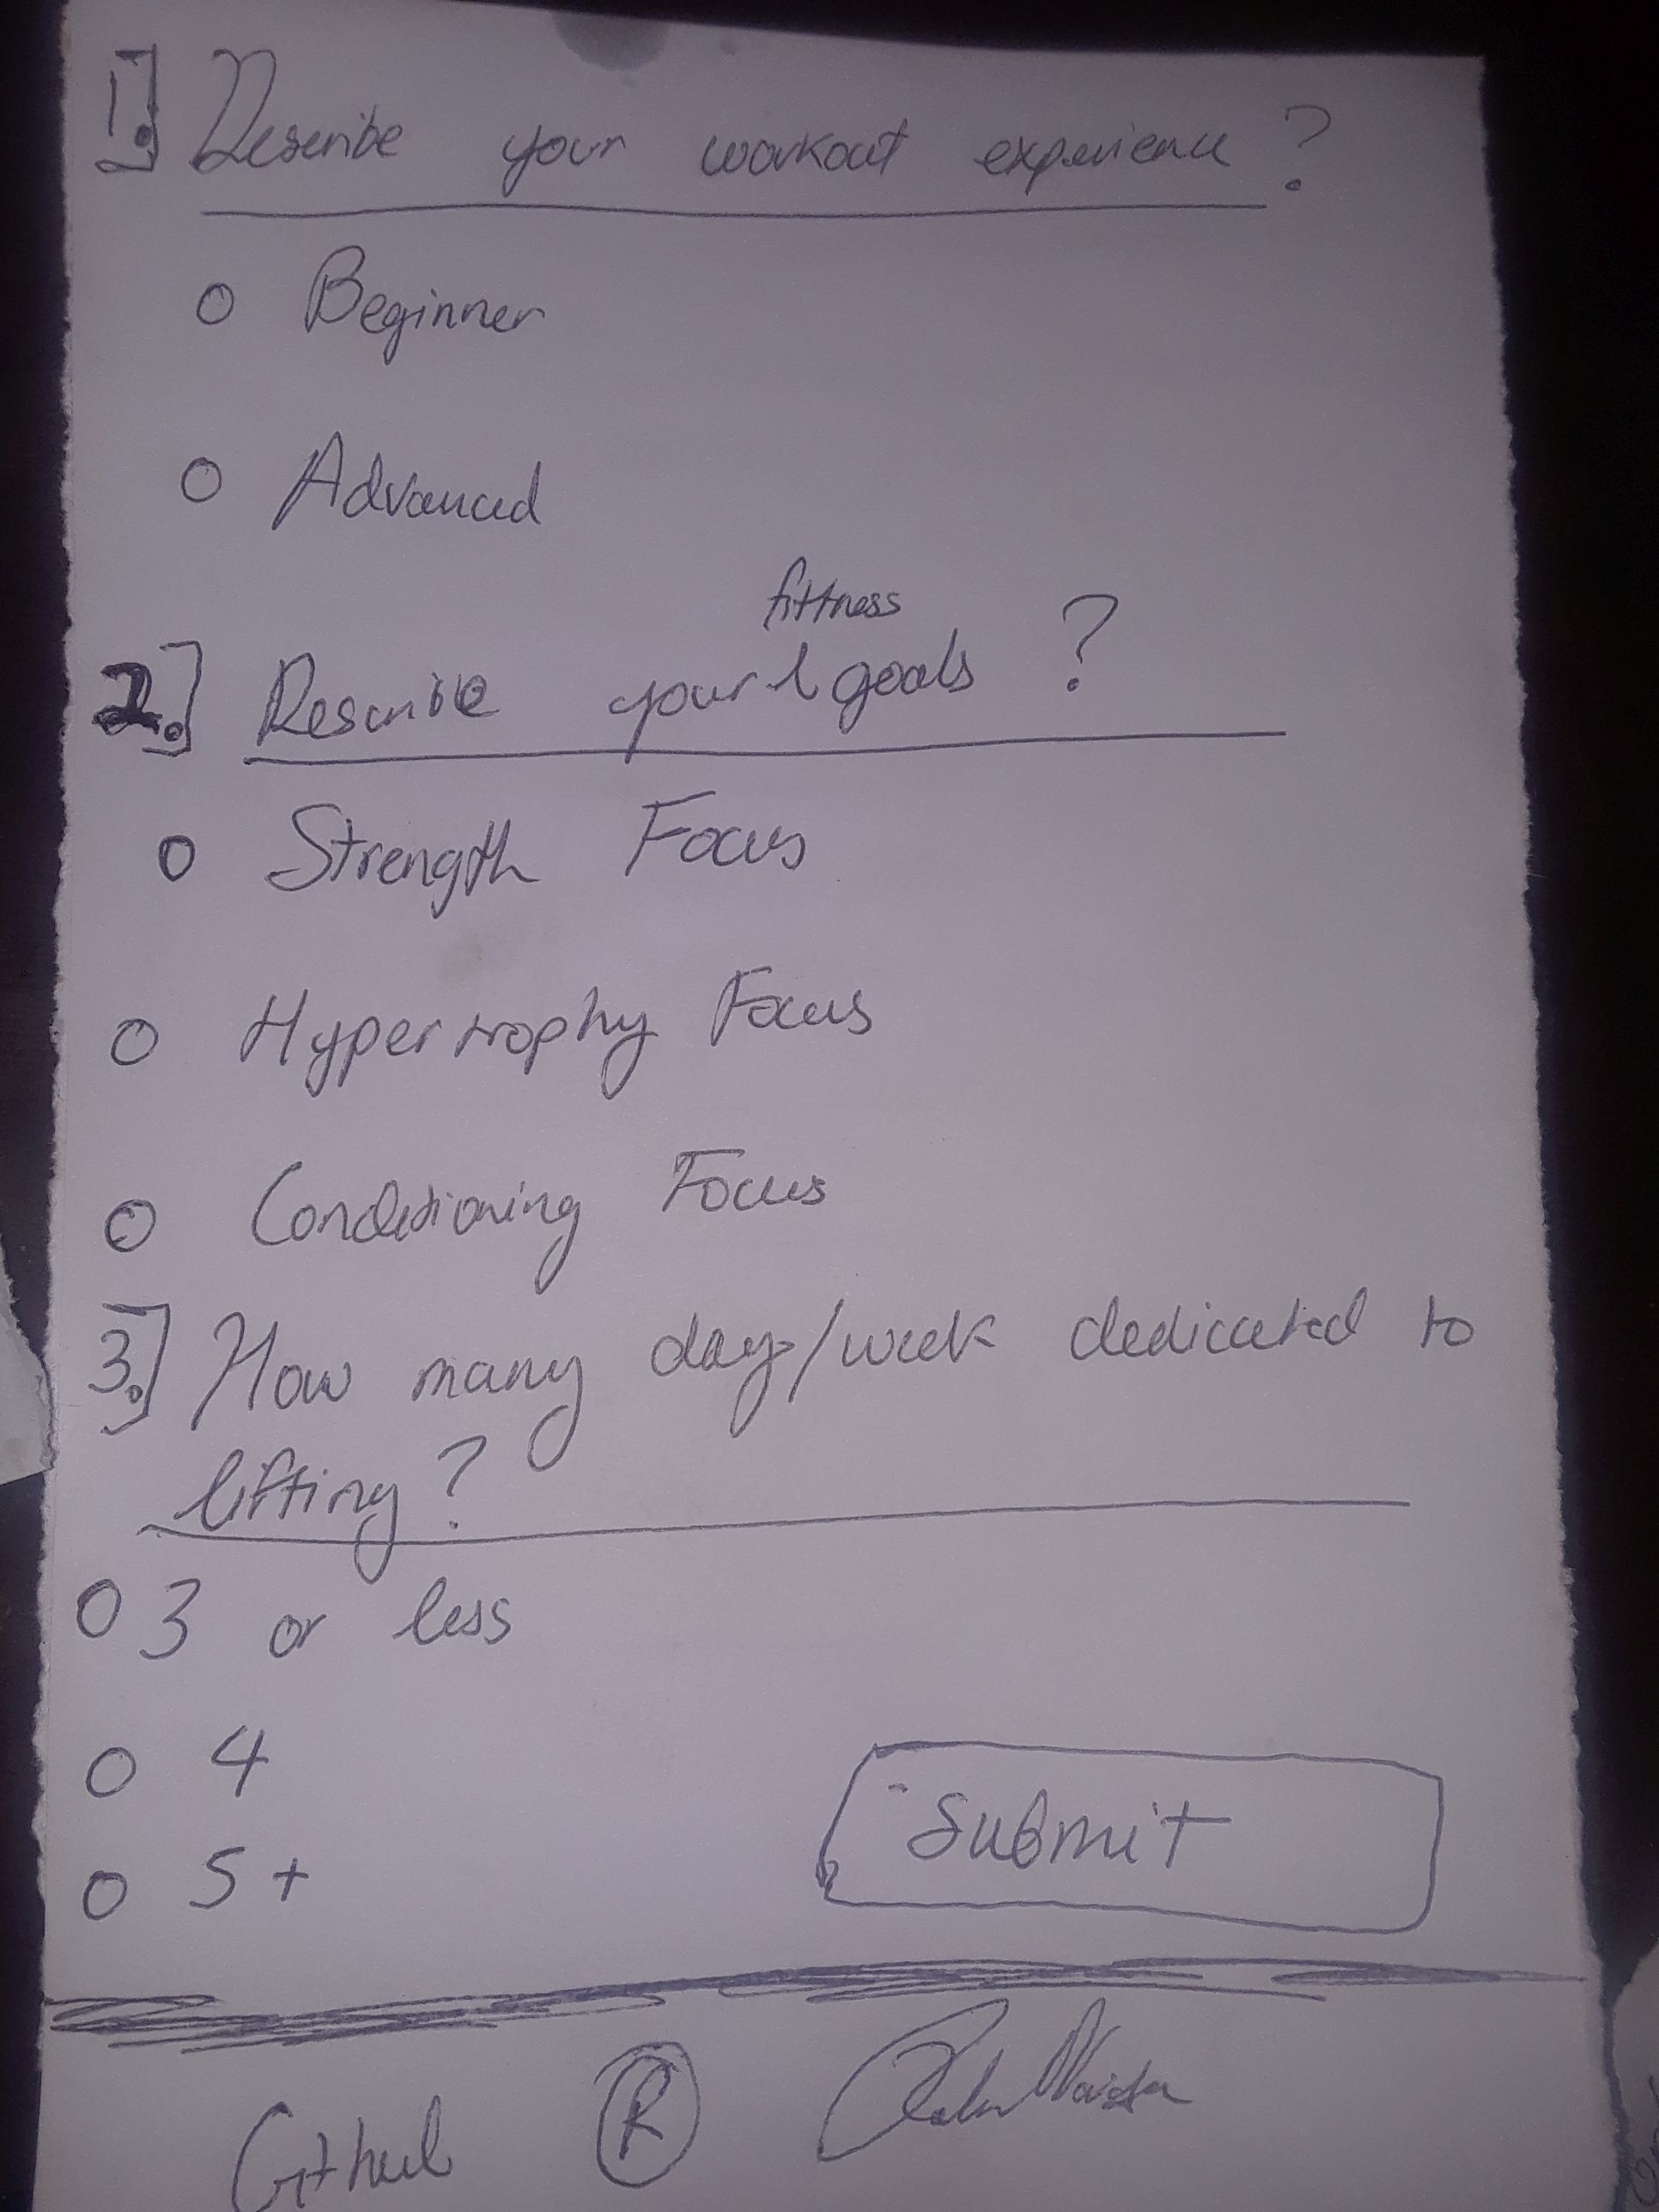 1.] Describe your workout experience?
O Beginner
O Advanced
fittness
2.] Describe your goals ?
O Strength Focus
O Hypertrophy Focus
O Conditioning Focus
3.] How many days/week dedicated to
lifting?
O 3 or less
O 4
O 5+
Submit
Github ®